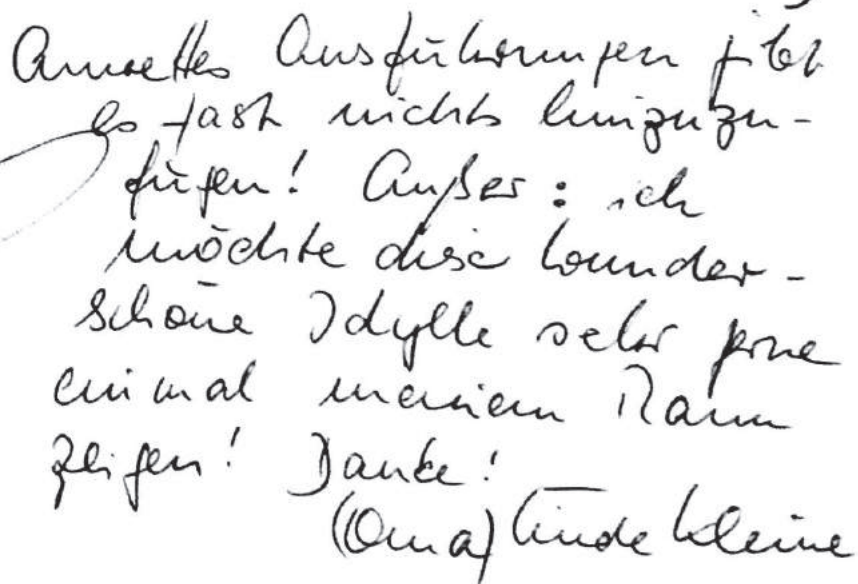 Annettes Ausführungen gibt
es fast nichts hinzuzu-
fügen! Außer: ich
möchte diese wunder-
schöne Idylle sehr gerne
einmal meinem Mann
zeigen! Danke!
(Oma) Linde Kleine